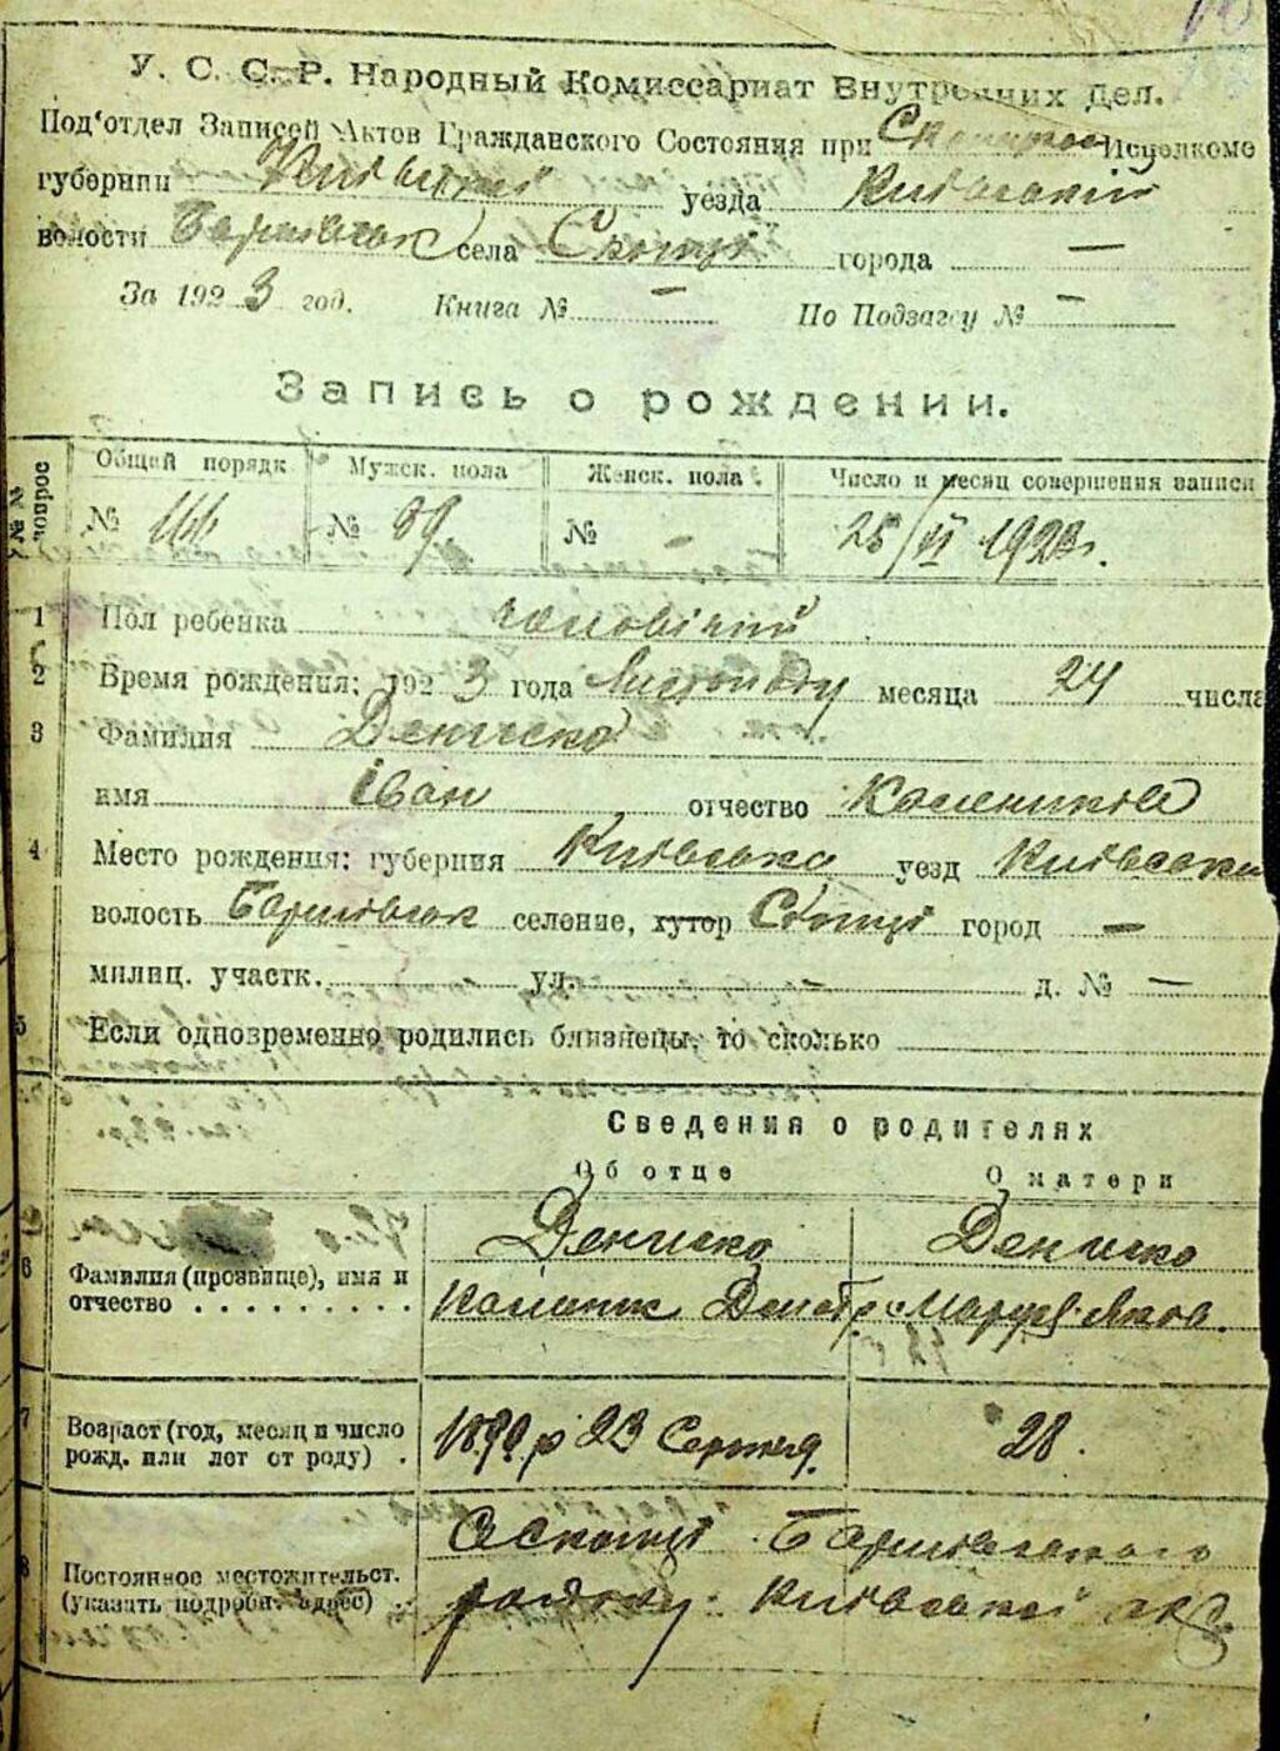 У. С. С. Р. Народный Комиссариат Внутренних Дел.
Под'отдел Записей Актов Гражданского Состояния при Исполкоме
губернии Київської уезда Київський
волости села Скотці города —
За 1923 год. Книга № — По Подзагсу № —
Запись о рождении.
№№ вопрос Общий порядк Мужск. пола Женск. пола Число и месяц совершения записи
№ № 89. № - 25/XI 1923 г.
1 Пол ребенка чоловічий
2 Время рождения: 1923 года Листопаду месяца 24 числа
3 Фамилия Дениско
имя Іван отчество Калеників
4 Место рождения: губерния Київська уезд Київськи
волость селение, хутор Скотці город —
милиц. участк. ул. — д. № —
5 Если одновременно родились близнецы, то сколько
Сведения о родителях
Об отце О матери
Дениско Дениско
6 Фамилия (прозвище), имя и
отчество . . . . . . . . . . Каленик Яков.
7 Возраст (год, месяц и число
рожд. или лет от роду) . р 23 Серпня 28.
8 Постоянное местожительст.
(указать подробн. адрес) . району Київської окр.